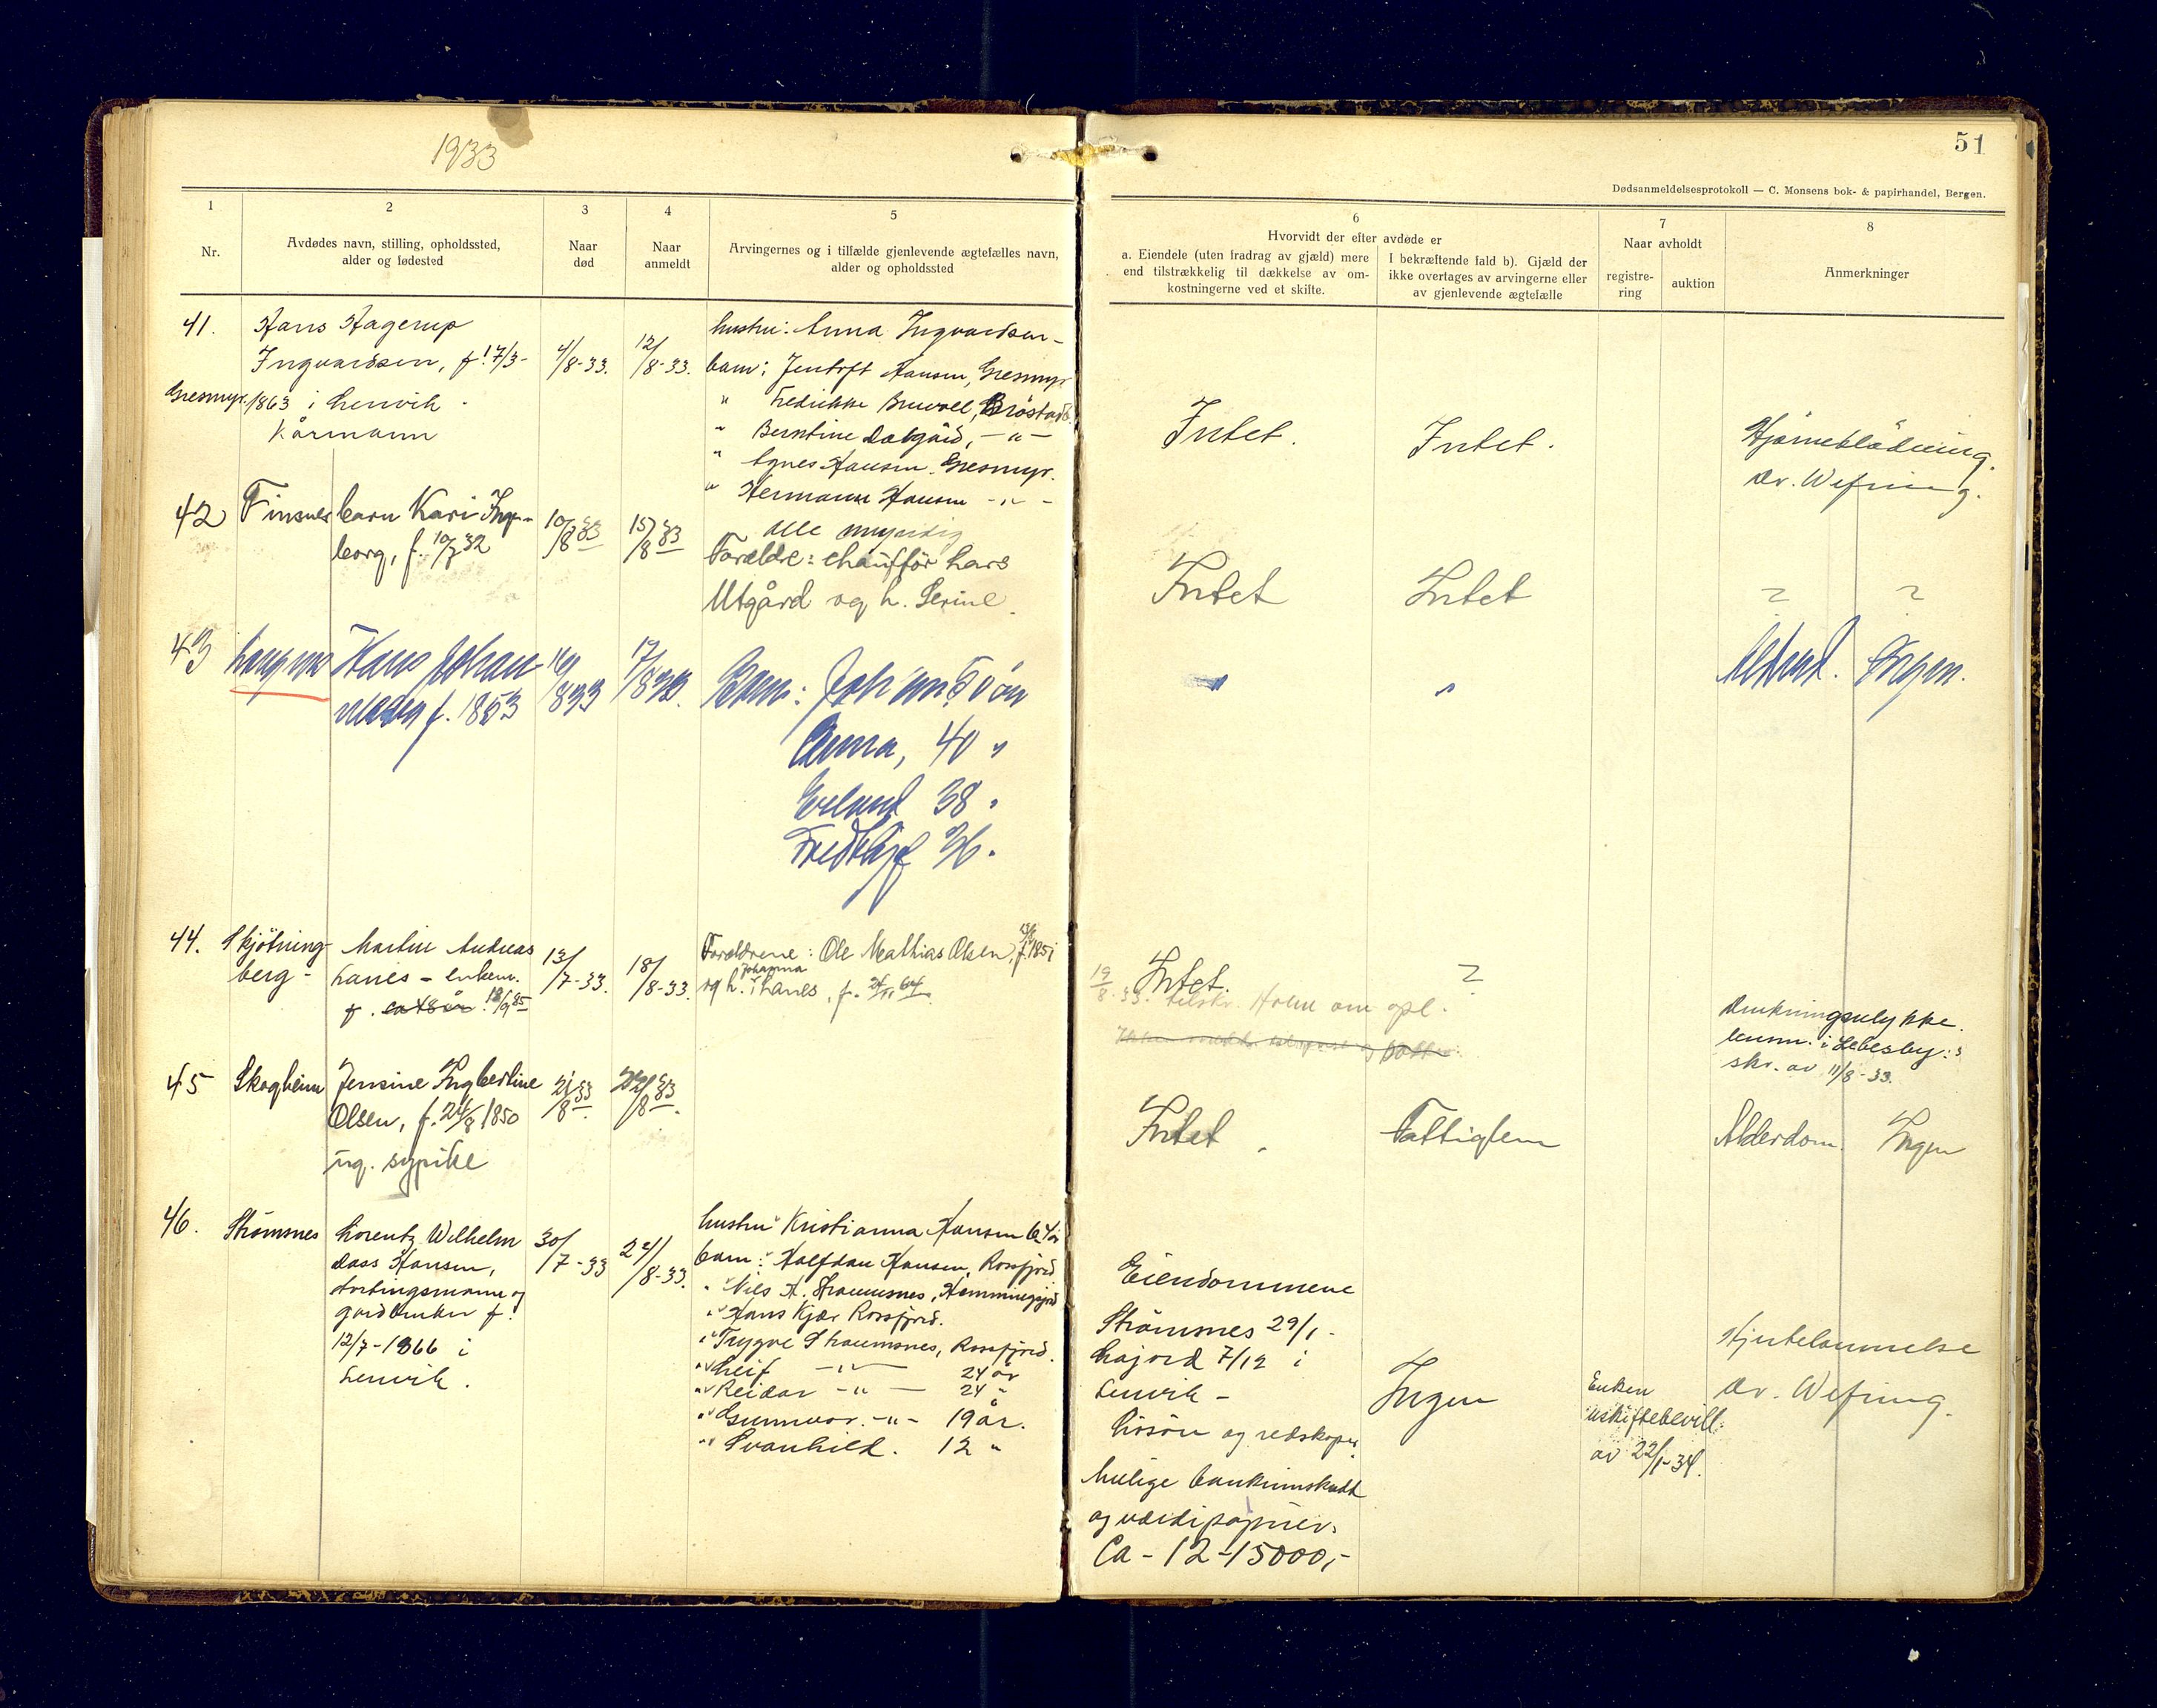 1933
51
Dødsanmeldelsesprotokoll — C. Monsens bok- & papirhandel, Bergen.
1
2
3
4
5
6
7
8
Nr.
Avdødes navn, stilling, opholdssted,
alder og fødested
Naar
død
Naar
anmeldt
Arvingernes og i tilfælde gjenlevende ægtefælles navn,
alder og opholdssted
Hvorvidt der efter avdøde er
a. Eiendele (uten fradrag av gjæld) mere
end tilstrækkelig til dækkelse av om-
kostningerne ved et skifte.
I bekræftende fald b). Gjæld der
ikke overtages av arvingerne eller
av gjenlevende ægtefælle
Naar avholdt
registre-
ring
auktion
Anmerkninger
41.
Hans Hagerup
Ingvardsen, f. 17/3-
Gresmyr. 1863 i Lenvik.
Kårmann
4/8-33.
12/8-33.
hustru: Anna Ingvardsen-
barn: Jentoft Hansen, Gresmyr
" Fredrikke Bruvoll, Brøstadb.
" Berntine Dalgård, -"-
" Agnes Hansen. Gresmyr.
" Hermann Hansen -"-
alle myndig
Intet.
Intet.
Hjerneblødning.
Dr. Wefring.
42
Finsnes
barn Kari Inge-
borg, f. 10/7 32
10/8 33
15/8 33
Forældre: chauffør Lars
Utgård og h. Serine.
Intet
Intet
?
?
43
Langnes
Hans Johan
f. 1853
16/8 33
17/8 33.
Barn:
Anna, 40 "
Erland 38 "
Fredthjof 36.
"
"
Alderd.
Ingen.
44.
Skjötning-
berg-
Martin Andreas
Hanes - enkem.
f. ca 48 år. 18/9 85
13/7-33.
18/8-33.
Forældrene: Ole Mathias Olsen, f. 1851
og h. Johanna Hanes, f.
Intet.
?
19/8-33. tilskr. Holm om opl.
Drukningsulykke.
lensm. i Lebesby's
skr. av 11/8-33.
45
Skogheim
Jensine Ingbertine
Olsen, f. 24/8 1850
ug. sypike
21/8 33
22/8 33.
Intet.
Fattiglem
Alderdom.
Ingen
46.
Strömsnes
Lorentz Wilhelm
Dass Hansen,
stortingsmann og
gårdbruker f.
12/7-1866 i
Lenvik.
30/7-33
24/8-33.
hustru Kristianna Hansen 64 år
barn: Halfdan Hansen, Rossfjord
" Nils H. Straumsnes, Hemmingsjord
" Hans Kjær Rossfjord.
" Trygve Straumsnes, Rossfjord.
" Leif -"- 24 år
" Reidar -"- 24 "
" Gunnvor. -"- 19 år.
" Svanhild. 12 "
Eiendommene
Strömsnes 29/1-
Lajord 7/12 i
Lenvik-
Lösöre og redskaper
Mulige bankinnskudd
og verdipapirer.
Ca - 12-15000,-
Ingen
Enken
uskiftebevill.
av 22/1-34.
Hjertelammelse
Dr. Wefring.